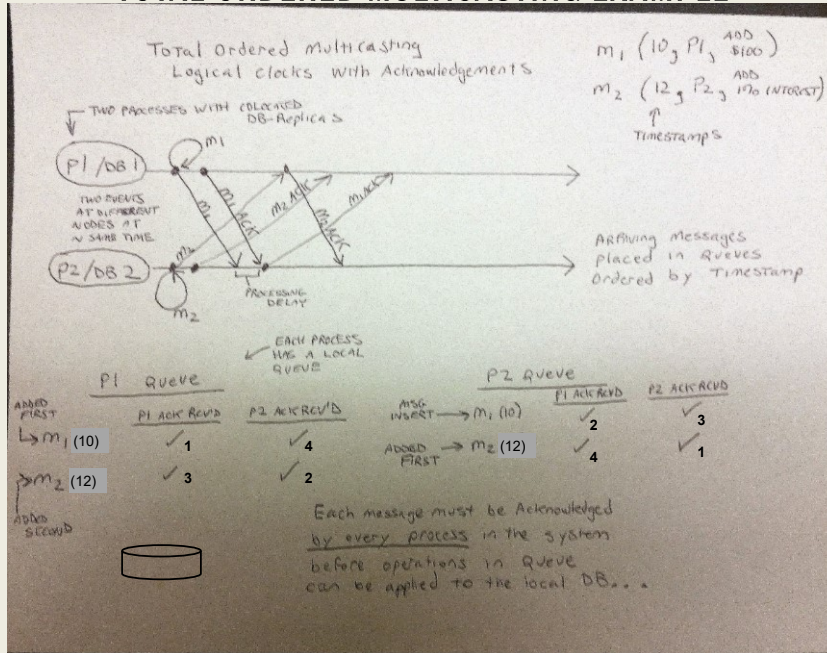 TOTAL ORDERED MULTICASTING EXAMPLE
Total Ordered Multicasting
Logical Clocks with Acknowledgements
m1 (10, P1, ADD $100)
m2 (12, P2, ADD 1% INTEREST)
Timestamps
TWO PROCESSES WITH COLOCATED
DB-Replicas
m1
P1/DB1
TWO EVENTS
AT DIFFERENT
NODES AT
~ SAME TIME
m1
m1 ACK
m2 ACK
m1 ACK
m2 ACK
m2
P2/DB2
m2
PROCESSING
DELAY
Arriving Messages
placed in Queues
Ordered by Timestamp
EACH PROCESS
HAS A LOCAL
QUEUE
P1 Queue
P1 ACK RCV'D P2 ACK RCV'D
ADDED
FIRST
m1 (10) ✓1 ✓4
m2 (12) ✓3 ✓2
ADDED
SECOND
P2 Queue
P1 ACK RCVD P2 ACK RCVD
MSG
INSERT → m1 (10) ✓2 ✓3
ADDED
FIRST → m2 (12) ✓4 ✓1
Each message must be Acknowledged
by every process in the system
before operations in Queue
can be applied to the local DB...